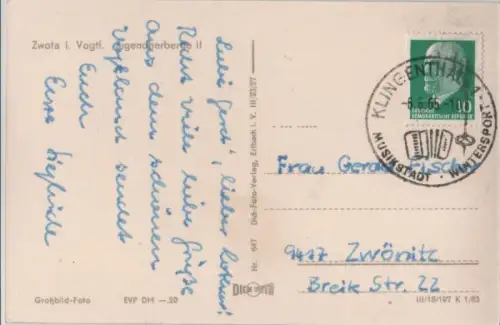 Zwota i. Vogtl. Jugendherberge II
Liebe Gerda, lieber Lothar!
Recht viele liebe Grüße
aus dem schönen
Vogtland sendet
Euch
Eure Sieglinde
Dick-Foto-Verlag, Erlbach i. V. III/23/27
Nr. 647
DICK FOTO
KLINGENTHAL
-8.6.65-
MUSIKSTADT · WINTERSPORT
10
DEUTSCHE
DEMOKRATISCHE REPUBLIK
Frau Gerda
9417 Zwönitz
Breit Str. 22
Großbild-Foto EVP DM —.20
III/18/197 K 1/63